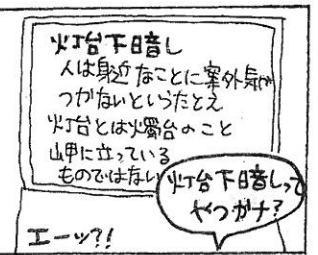 灯台下暗し
人は身近なことに案外気が
つかないというたとえ
灯台とは燭台のこと
岬に立っている
ものではない
灯台下暗しって
やつかナ?
エーッ?!